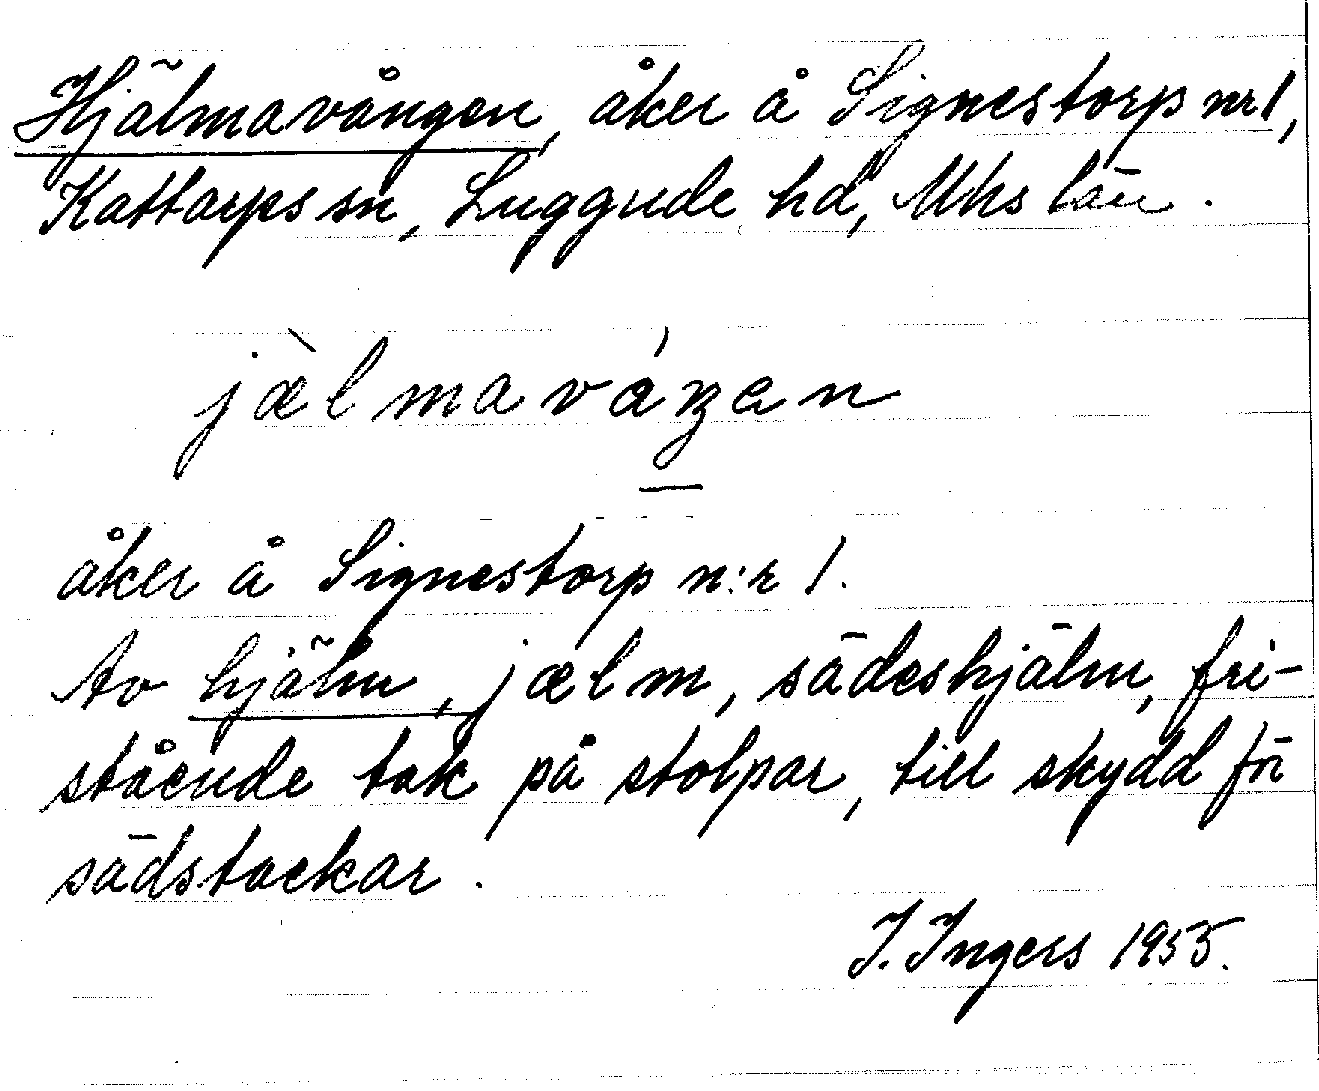 Hjälmavången, åker å Signestorp nr 1,
Kattarps sn, Luggude hd, Mhs län.
jæ̀lmaváŋan
åker å Signestorp n:r 1.
Av hjälm, jælm, sädeshjälm, fri-
stående tak på stolpar, till skydd för
sädstackar.
I. Ingers 1955.